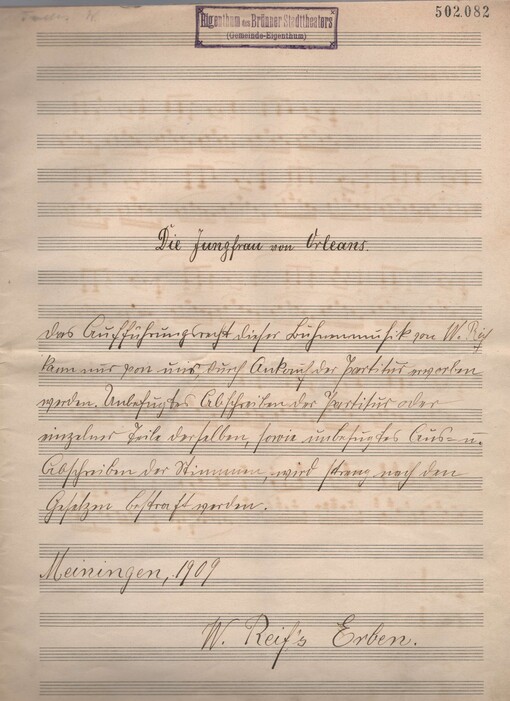 502.082
Eigenthum des Brünner Stadttheaters
(Gemeinde-Eigenthum)
Die Jungfrau von Orleans.
Das Aufführungsrecht dieser Bühnenmusik von W. Reif
kann nur von uns, durch Ankauf der Partitur erworben
werden. Unbefugtes Abschreiben der Partitur oder
einzelner Teile derselben, sowie unbefugtes Aus= u.
Abschreiben der Stimmen, wird streng nach den
Gesetzen bestraft werden.
Meiningen, 1909
W. Reif's Erben.